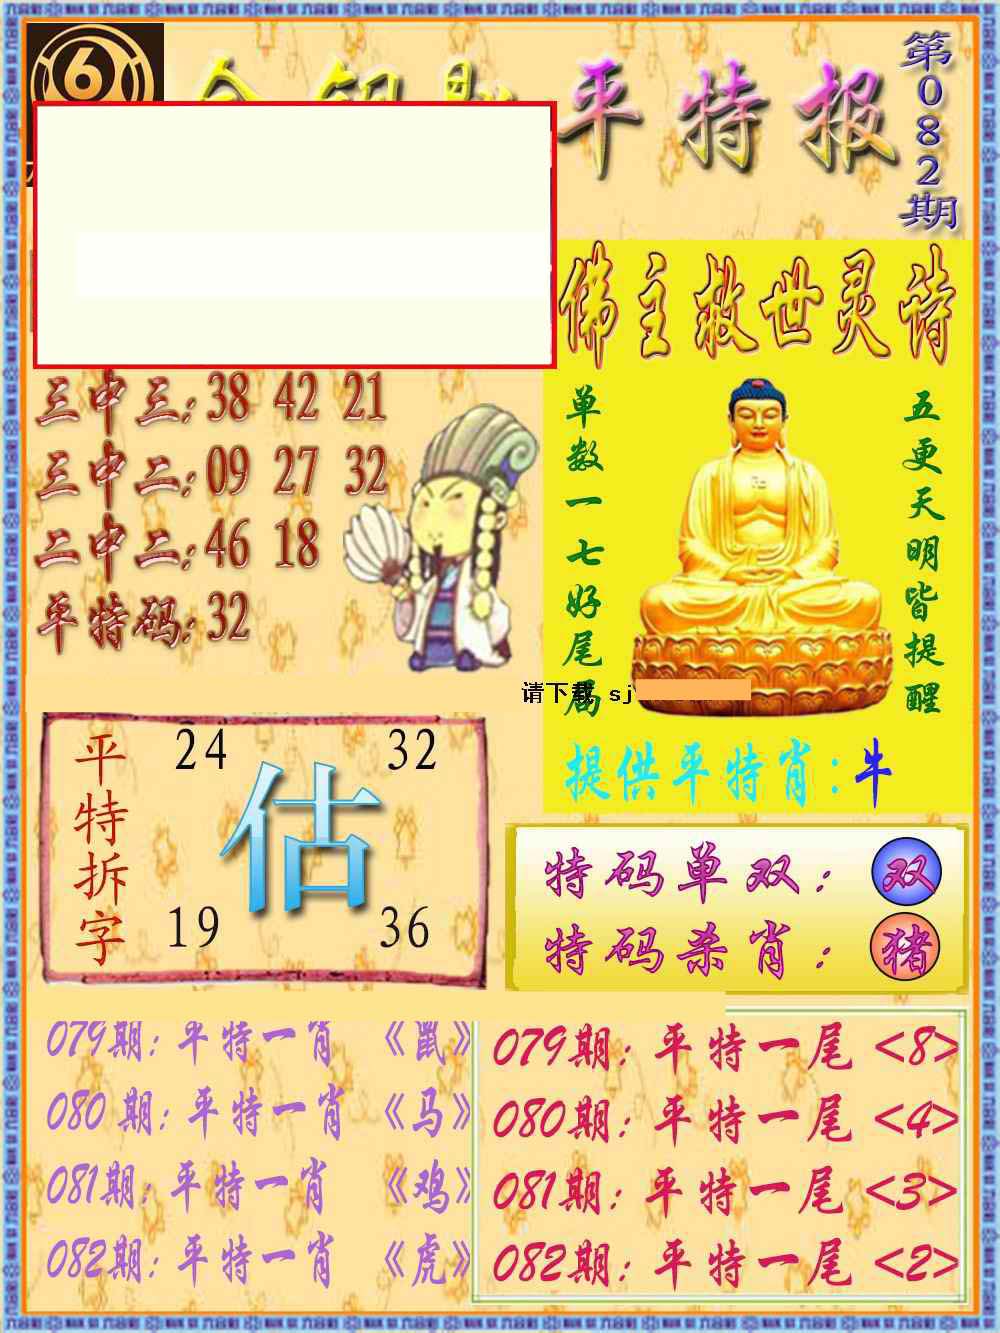 6
平特报
第082期
佛主救世灵诗
三中三:38 42 21
三中二:09 27 32
二中二:46 18
平特码:32
单数一七好尾
五更天明皆提醒
请下载 sj
提供平特肖:牛
平特拆字
24 32
估
19 36
特码单双:双
特码杀肖:猪
079期:平特一肖 《鼠》
080期:平特一肖 《马》
081期:平特一肖 《鸡》
082期:平特一肖 《虎》
079期:平特一尾 <8>
080期:平特一尾 <4>
081期:平特一尾 <3>
082期:平特一尾 <2>